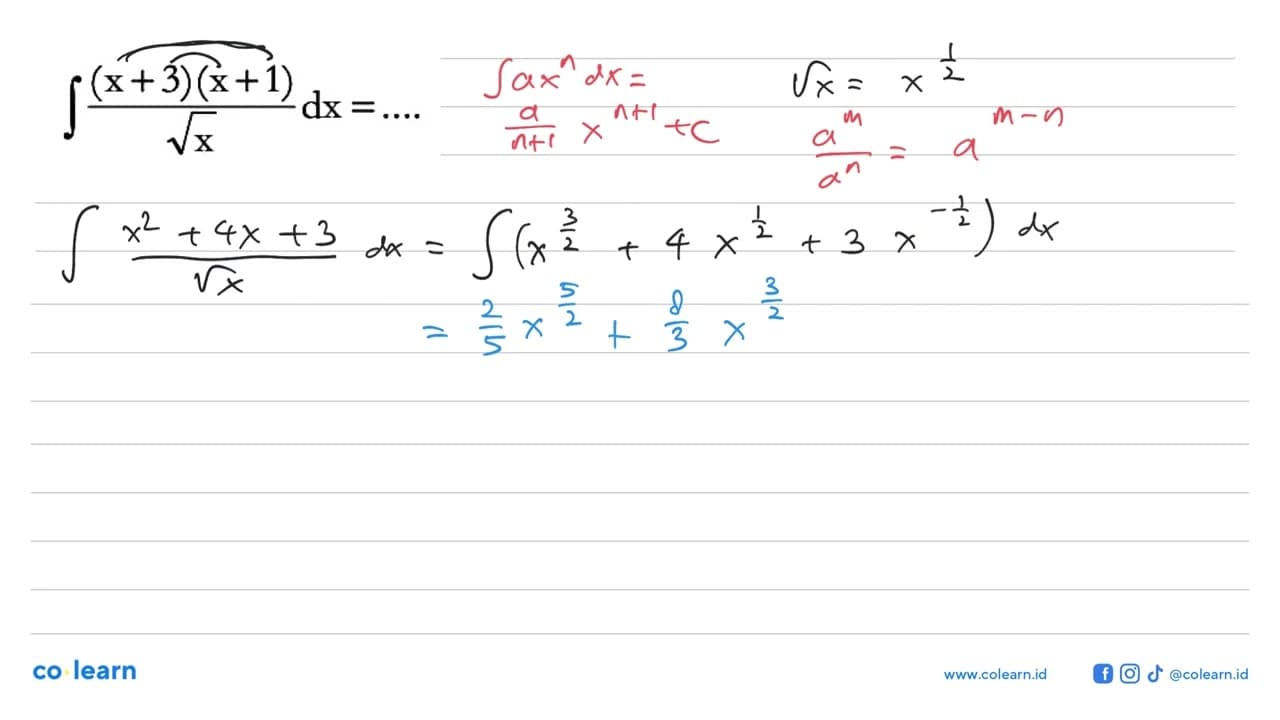 ∫ (x+3)(x+1)/√x dx = ....
∫ax^n dx =
a/(n+1) x^(n+1) + C
√x = x^(1/2)
a^m/a^n = a^(m-n)
∫ (x² + 4x + 3)/√x dx = ∫(x^(3/2) + 4x^(1/2) + 3x^(-1/2)) dx
= 2/5 x^(5/2) + 8/3 x^(3/2)
co learn
www.colearn.id
@colearn.id